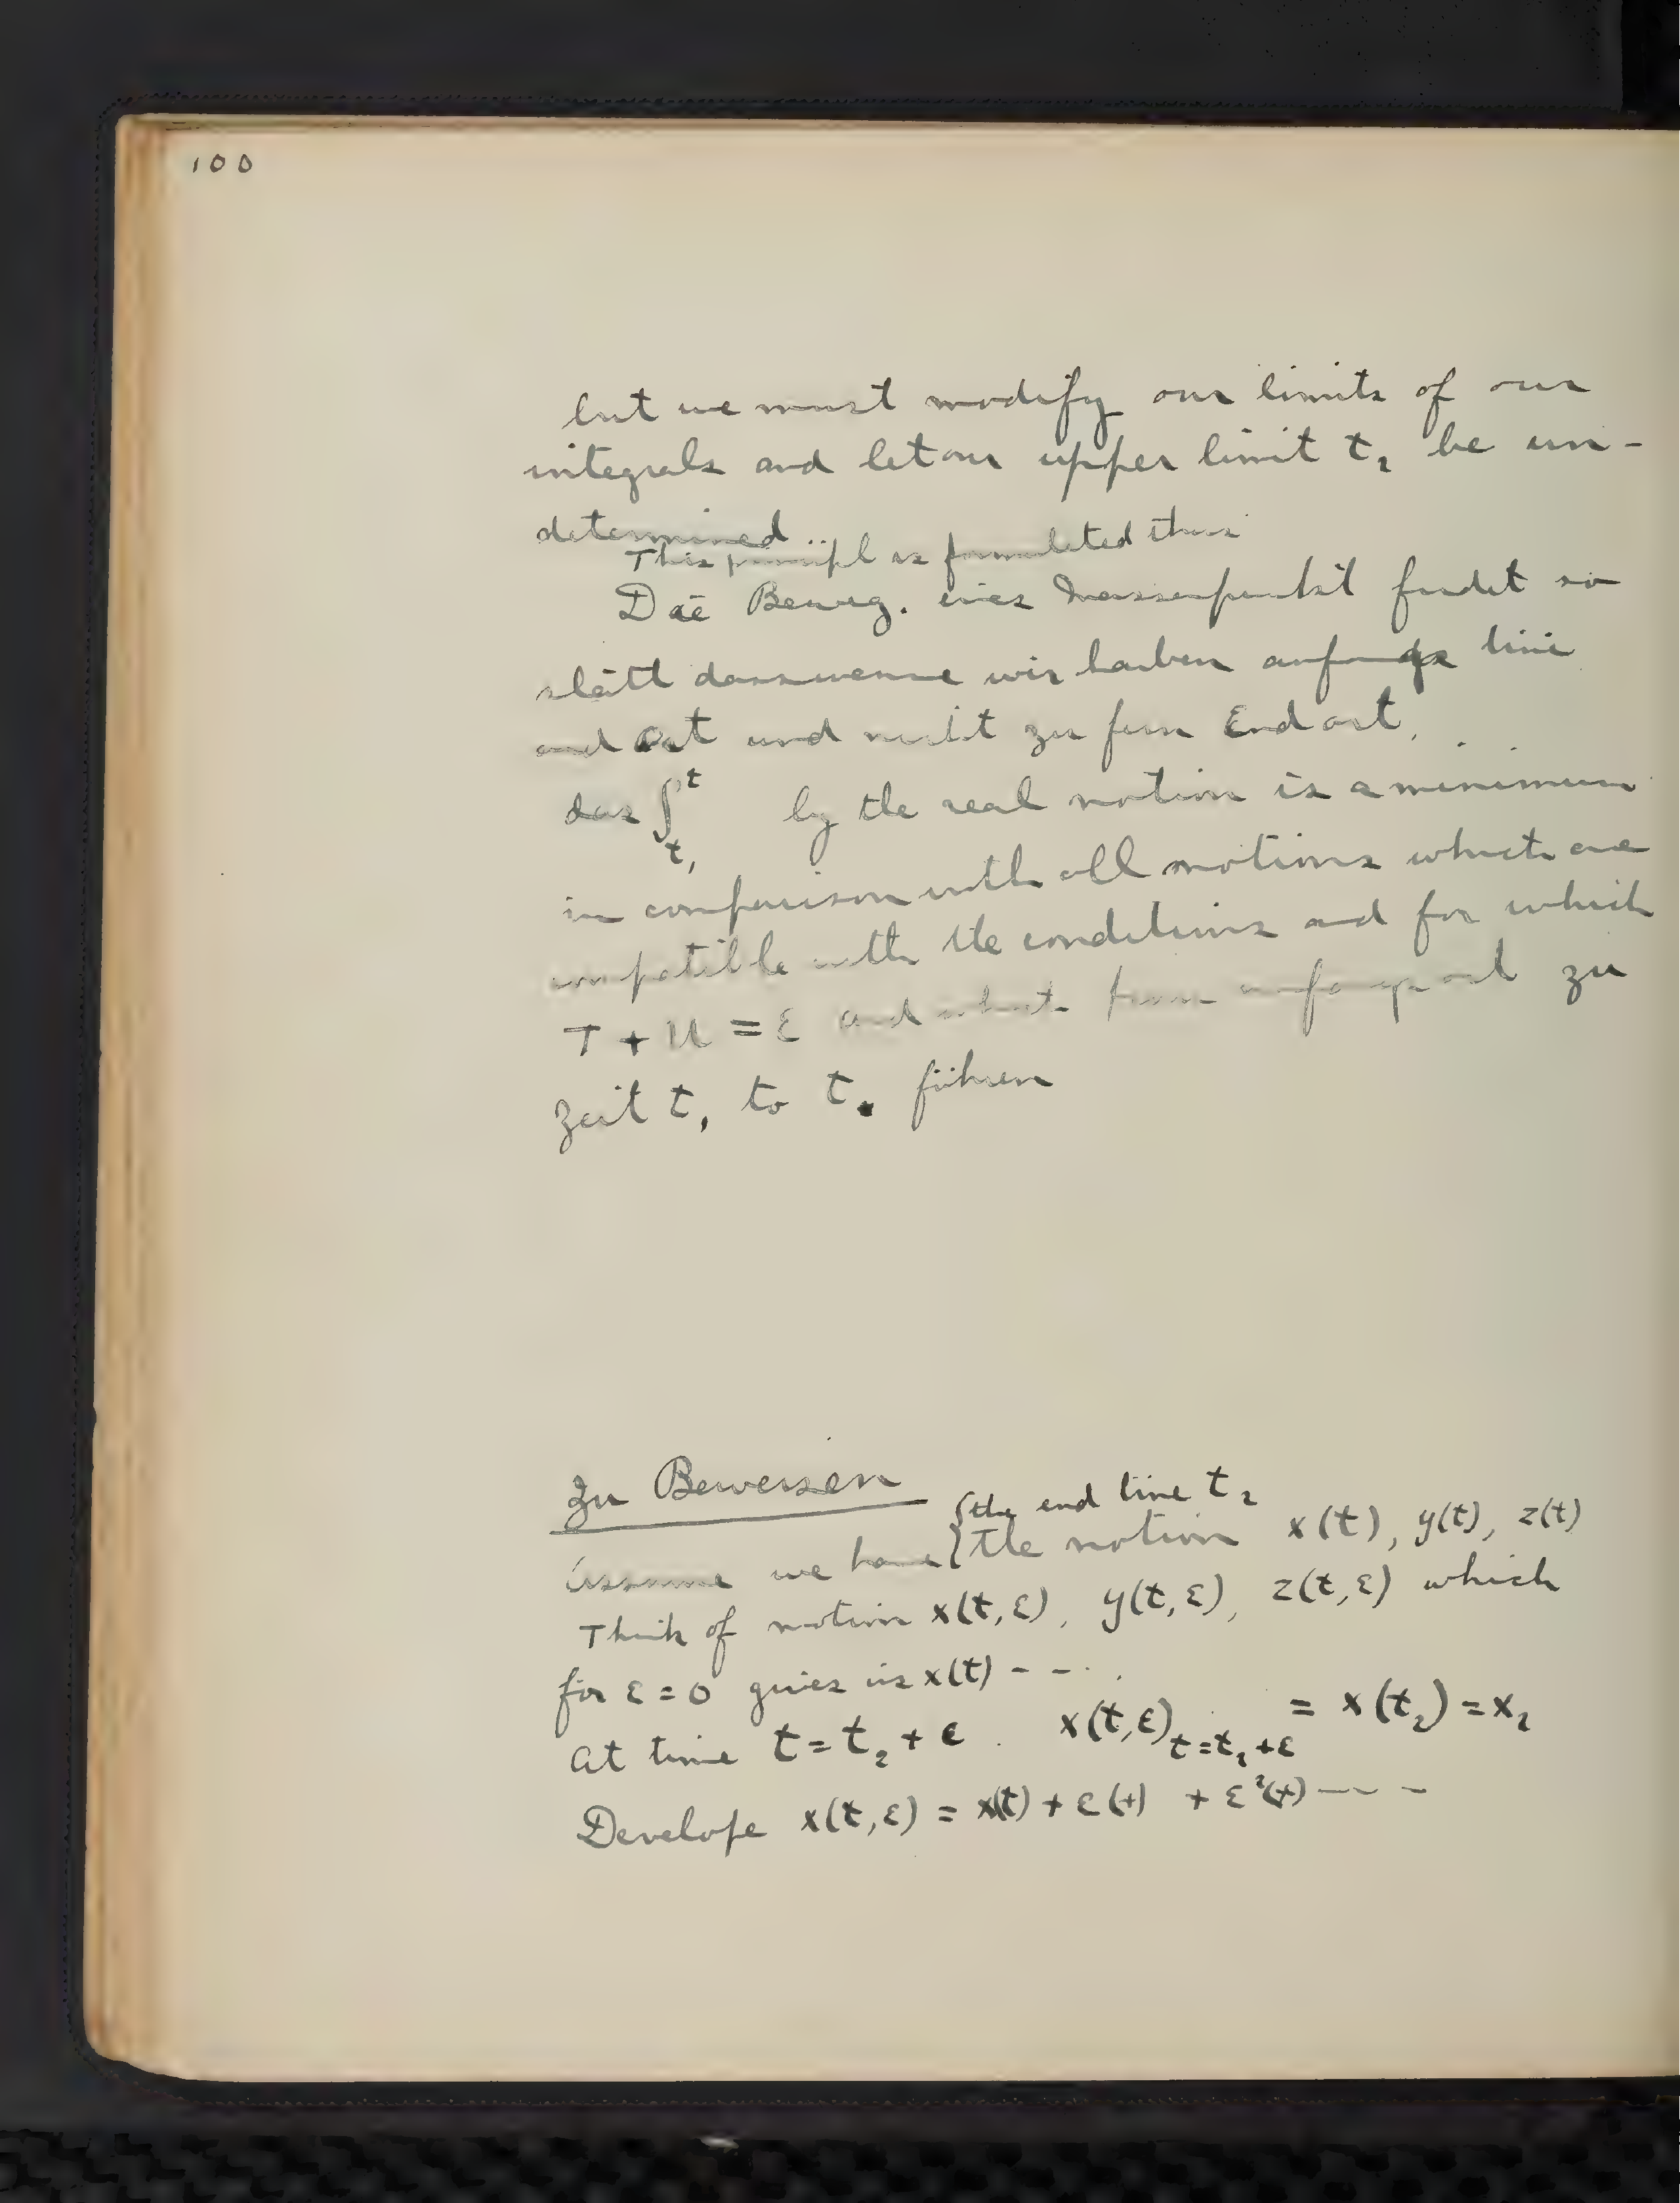 100
but we must modify our limits of our
integrals and let our upper limit t₂ be un-
determined
This principl is formulated thus
Die Beweg. eines Massenpunkt findet so
statt dass wenn wir haben anfangs time
and Ort und nicht zu fern Endort.
das ∫ₜ₁ᵗ by the real motion is a minimum
in comparison with all motions which are
compatible with the conditions and for which
T + U = E and which from anfangs ort zu
zeit t₁ to t. führen
Zu Beweisen
{the end time t₂
Assume we have {the motion x(t), y(t), z(t)
Think of motion x(t,ε), y(t,ε), z(t,ε) which
for ε = 0 gives us x(t) - - - .
At time t = t₂ + ε . x(t,ε)ₜ₌ₜ₂₊ε = x(t₂) = x₂
Develope x(t,ε) = x(t) + ε(t) + ε²(t) - - -